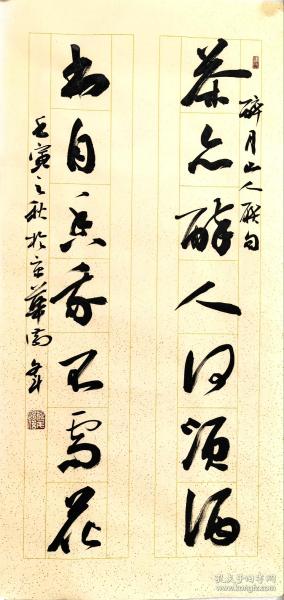 醉月山人联句
茶亦醉人何须酒
书自香我不需花
壬寅之秋於京華
孔夫子旧书网